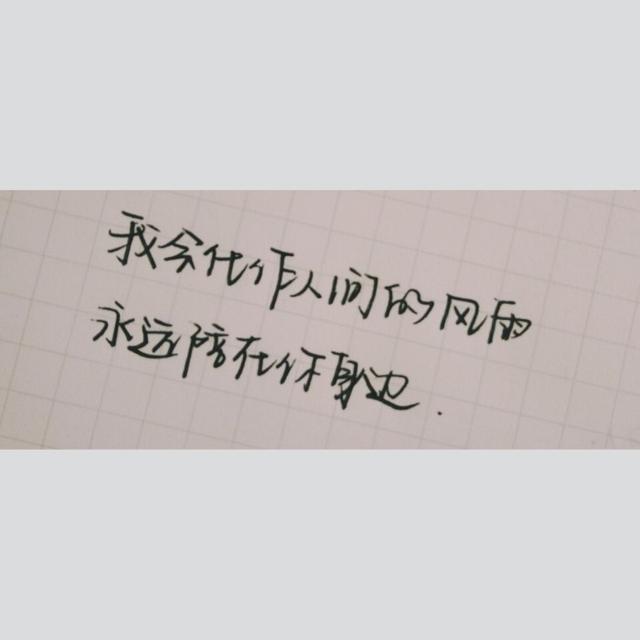 我会化作人间的风雨
永远陪在你身边.